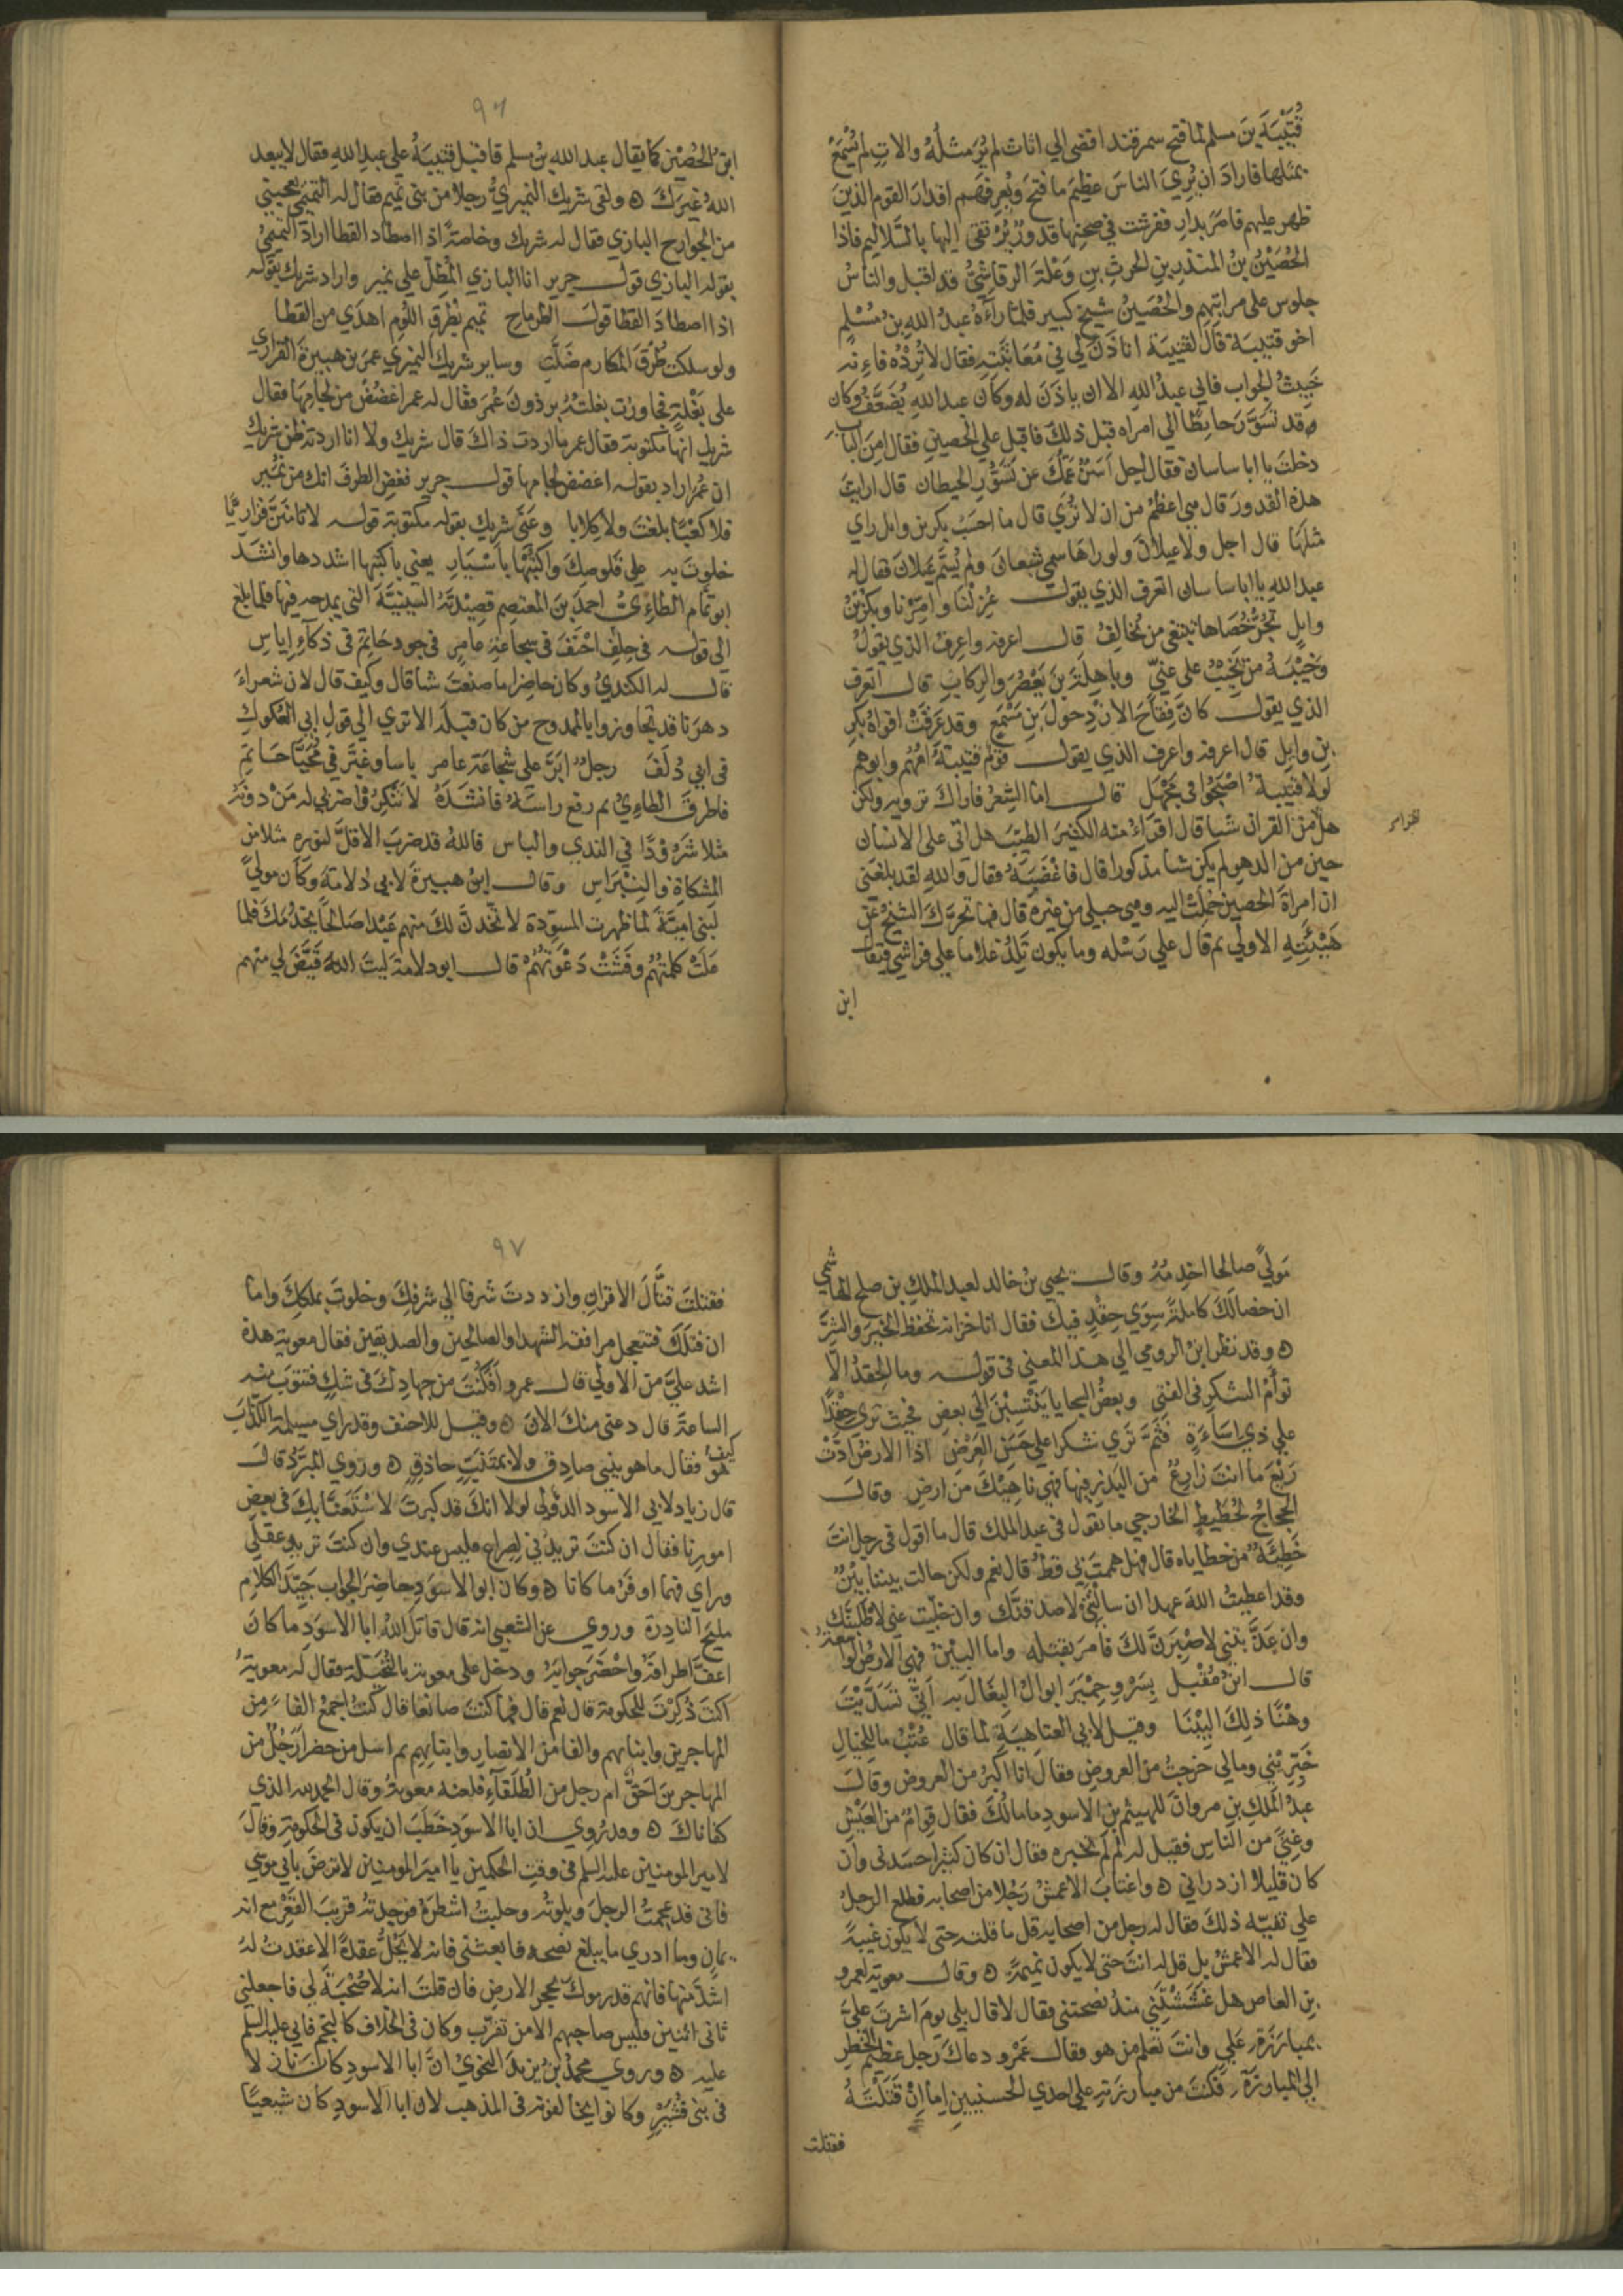 قُتَيْبَةَ بنَ مسلم لما فتح سمرقند افضى الي اثاث لم يُرَ مثلُهُ والاتٍ لم يُسْمَعْ
بمثلها فاراد ان يُرِيَ الناسَ عظيمَ ما فتح ويُعرِفهم اقدارَ القوم الذين
ظهر عليهم فامرَ بدارٍ ففرشت في صحنها قدورٌ يُرْتقى اليها بالسَّلاليم فاذا
الحُضَيْنُ بنُ المنذرِ بنِ الحرثِ بنِ وَعْلَةَ الرقاشيُّ قد اقبل والناسُ
جلوس على مراتبهم والحُضَينُ شيخ كبير فلما رآهُ عبدُ اللهِ بنُ مُسْلم
اخو قتيبة قالَ لقتيبة اتاذنُ لي في مُعَاتبَتِهِ فقال لا تُرِدْهُ فاءِنه
خَبيثُ الجواب فابي عبدُ اللهِ الا ان ياذَنَ له وكان عبد اللهِ يُضَعَّفُ وكان
قد تسَوَّرَ حايطًا الى امراه قبل ذلكَ فاقبل علي الحضينِ فقال امِنَ البابِ
دخلتَ يا ابا ساسان فقال اجل اَسَنَّ عَمُّكَ عن تَسَوُّرِ الحيطان قال ارايتَ
هذه القدورَ قال هي اعظمُ من ان لا تُرَي قال ما احسِبُ بكر بن وايل راي
مثلَهَا قال اجل ولا عيلانَ ولو راهَا سمي شبعان ولم يُسَمَّ عيلان فقال له
عبد اللهِ يا ابا ساسان اتعرف الذي يقول عَزلْنَا وامّرْنا وبكرُ بْنُ
وايلٍ تجُرُّ خُصَاها تبتغى من تُحَالِفُ قال اعرفه واعرف الذي يقولُ
وخَيْبَةُ من يَخِيْبُ على غَنِيٍّ وباهِلَةَ بنَ يَعْصُرَ والرِكابِ قال اتعرف
الذي يقول كانَّ فِقَاحَ الازْدِ حولَ بنِ مَسْمَعٍ وقد عَرقَتْ افواهُ بكرِ
بن وايِل قال اعرفه واعرف الذي يقول قومٌ قتيبةُ اُمُّهُم وابوهم
لولا قتيبةُ اصْبَحُوا في مَجْهَل قال امّا الشِعْرُ فاراكَ ترويه ولكن
هل من القران شيا قال اقراءُ منه الكثيرَ الطيّبَ هل اتى على الانسان
تقرا من
حين من الدهر لم يكن شيا مذكورا قال فاغْضَبَهُ فقال واللهِ لقد بلغنى
ان امراةَ الحضين حُمِلَتْ اليه وهى حبلي من غيره قال فما تحرّكَ الشيخُ عن
هَيْئَتِهِ الاولي ثم قال علي رَسْله وما يكون تَلِدُ غلاما على فراشي فيقال
ابن
٩٦
ابنُ الحُضَيْن كما يقال عبد الله بنُ مسلم فاقبل قتيبةُ علي عبدِ اللهِ فقال لا يبعد
اللهُ غيرَكَ ه ولقي شريك النميريُّ رجلا من بنى تميم فقال له التميمي يعجبني
من الجوارح البازي فقال له شريك وخاصةً اذا اصطاد القطا اراد التميميُ
بقوله البازي قول جرير انا البازي المُطِلّ علي نميرٍ واراد شريك بقوله
اذا اصطادَ القطا قولَ الطرماحِ تميم بطُرْقِ اللُؤمِ اهدَي من القطا
ولو سلكت طُرُقَ المكارم ضَلَّتِ وساير شريك النميري عمرَ بن هبيرةَ الفزاري
على بَغْلةٍ فجاوزت بغلتُهُ برذونَ عُمرَ فقال له عمر اغضُضْ من لجامِهَا فقال
شريك انها مكتوبة فقال عمر ما اردت ذاكَ قال شريك ولا انا اردته ظن شريك
ان عُمرَ اراد بقوله اغضض لجامها قول جرير فغض الطرفَ انك من نُمَيْر
فلا كعْبًا بلغتَ ولا كِلابا وعَنَى شريك بقوله مكتوبة قوله لا تامَنَنَّ فزاريًّا
خلوتَ به علي قَلُوصِكَ واكتُبْهَا باَسْيَارِ يعنى باكتبها اشددها وانشدَ
ابو تمام الطاءِيُّ احمدَ بنَ المعتصم قصِيْدتَهُ السّينيَّةَ التى يمدحه فيها فلما بلغ
الى قوله في حِلمِ احْنَفَ فى شجاعَةِ عامرٍ فى جود حَاتِم فى ذكاءِ إياسِ
قال له الكنديُ وكان حاضِرا ما صنعتَ شيا قال وكيف قال لان شعراءَ
دهرَنا قد تجاوزوا بالممدوح من كان قبلَه الا ترى الي قولِ ابي العَكَوكِ
فى ابي دُلَفَ رجلٌ ابَرَّ على شجاعَة عامرٍ باسا وغبّرَ في مُحَيَّا حَاتِمِ
فاطرقَ الطاءِيُ ثم رفع راسَهُ فانشدَهُ لا تُنْكرُوا ضربي له مَنْ دونَهُ
مثلا شَرُوْدًا في الندي والباس فاللهُ قد ضربَ الاقلَّ لنوره مثلا من
المشكاةِ والنِبْرَاسِ وقال ابنُ هبيرةَ لابى دلامةَ وكان موليً
لبنى اميّةَ لما ظهرت المسوِّدة لا تّخذنَّ لكَ منهم عَبْدا صَالحًا يخدُمُكَ فلما
عَلَتْ كلمتُهُم وفَشَتْ دَعْوَتُهُمْ قال ابو دلامة لَيتَ اللهَ قَيَّضَ لي منهم
مَولًي صالحا اخدِمُهُ وقال يحيى بنُ خالد لعبد الملكِ بنِ صلح الهاشمي
ان خصالَكَ كاملةٌ سِوَي حِقْدٍ فيك فقال انا خزانة تحفظ الخيرَ والشرَّ
ه وقد نظر ابنُ الرومي الي هذا المعني فى قوله وما الحقدُ الّا
توأَمُ الشكرِ فى الفتى وبعضُ السجايا يَنْتَسِبْنَ الي بعضِ فحيث تري حِقْدًا
علي ذي اسَاءَةٍ فَثَمَّ تَرَي شكرا علي حَسَنِ القَرْضِ اذا الارضُ ادّتْ
رَيْعَ ما انتَ زارعٌ من البَذْرِ فيها فهي ناهِيْكَ من ارضِ وقال
الحجاجُ لحُطَيطٍ الخارجي ما تقول فى عبد الملك قال ما اقول فى رجل انتَ
خَطِيئَةٌ من خطاياه قال فهل هممتَ بي قطُّ قال نعم ولكن حالت بيننا بِيْنٌ
وقد اعطيتُ اللهَ عهدا ان سالْتَنِي لاصدقنَّك وان خلّيتَ عني لاطلبنَّكَ
وان عذَّبتني لاصْبِرَنَّ لكَ فامرَ بقتله واما البِيْنُ فهي الارضُ الواسعة
قال ابنُ مُقْبل بِسَرْوِ حِمْيَرَ ابوالُ البِغَالِ به اَنّي تَسَدَّيْتَ
وهْنًا ذلِكَ البِيْنَا وقيل لابي العتاهِيَةِ لما قال عُتْبُ ما للخيَالِ
خَبّرِيْني ومالي خرجتَ من العروضِ فقالَ انا اكبرُ من العروض وقال
عبدُ المَلكِ بنِ مروانَ للهيثم بنِ الاسودِ ما مالُكَ فقال قِوامٌ من العَيْشِ
وغِنًي من الناسِ فقيل له لِمَ لَمْ تخبره فقال ان كان كثيرا حسَدنى وان
كان قليلا ازدرانى ه واغتابَ الاعمشُ رَجُلا من اصحابه فطلع الرجلُ
علي تفيّه ذلكَ فقال له رجل من اصحابه قل ما قلته حتى لا يكونَ غيبةً
فقال له الاعمشُ بل قل له انتَ حتى لا يكون نميمةً ه وقال معويه لعمرو
بنِ العاصِ هل غَشَشْتَنِي منذُ نصحتنى فقال لا قال بلي يومَ اشرتَ عليَّ
بمبارَزَةِ عَلي وانتَ تعلم من هو فقال عَمْرو دعاكَ رجل عظيمُ الخطرِ
الي المبارزَةِ فكنتَ من مبارزَتهِ علي احدي الحسنيينِ اِما اِنْ قَتَلْتَهُ
فقتلت
٩٧
فقتلتَ قتَّالَ الاقرانِ وازددتَ شرفا الي شرفِكَ وخلوتَ بملكِكَ واما
ان قتلَكَ فتتعجل مرافقة الشهدا والصالحين والصديقين فقال معوية هذه
اشد عليَّ من الاولي قال عمرو اَفَكُنتَ من جهادِكَ فى شكٍ فتتوبَ منه
الساعةَ قال دعنى منكَ الانَ ه وقيل للاحنف وقد راي مسيلمةَ الكذابَ
كيف هو فقال ما هو بنبي صادِق ولا بمتنبّئٍ حاذقٍ ه وروي المبَرَّدُ قال
قال زياد لابي الاسود الدؤلي لولا انكَ قد كبرتَ لاسْتَعَنَّا بِكَ فى بعضِ
امورِنا فقال ان كنتَ تريدُني للصِراعِ فليس عندي وان كنتَ تريدُ عقلي
وراي فهما اوفَرُ ما كانا ه وكان ابو الاسوَدِ حاضِرَ الجواب جيّدَ الكلامِ
مليحَ النادرة وروي عن الشعبي انه قال قاتلَ اللهُ ابا الاسوَدِ ما كانَ
اعفَّ اطرافَهُ واحْضَرَ جوابَهُ ودخل على معوية بالنُخَيْلة فقال له معويةُ
اكنتَ ذُكِرْتَ للحكومة قال نعم قال فما كنتَ صانعا قال كنتُ اجمعُ الفاً من
المهاجرين وابناىهم والفا من الانصارِ وابنايِهم ثم اسل من حضر ارَجُلٌ من
المهاجرين احَقُّ ام رجل من الطُلَقَآءِ فلعنه معويةُ وقال الحمد لله الذي
كفاناكَ ه وقد رُوي ان ابا الاسوَدِ خطَبَ ان يكونَ فى الحكومَةِ وقالَ
لامير المومنين عليه السلم فى وقتِ الحكمين يا اميرَ المومنين لا ترضَ بابي موسي
فانى قد عجمتُ الرجلَ وبلوتُه وحلبتُ اشطرَهُ فوجدتهُ قريبَ القَعْرِ مع انه
يمانٍ وما ادري ما يبلغ نصحه فابعثنى فانه لا يَحُلُّ عقدةً الا عقدتُ لهَ
اشدَّ منها فانهم قد رموكَ بحجر الارضِ فان قلتَ انه لا صُحْبَةَ لي فاجعلني
ثانىَ اثنين فليس صاحبهم الا من تقرّبَ وكان فى الخلاف كالنجم فابي عليه السلم
عليه ه وروي محمدُ بنُ يزيدَ النحويُ انَّ ابا الاسودِ كان نازلا
فى بنى قُشَيْرٍ وكانوا يخالفونه فى المذهب لان ابا الاسودِ كان شيعيًّا